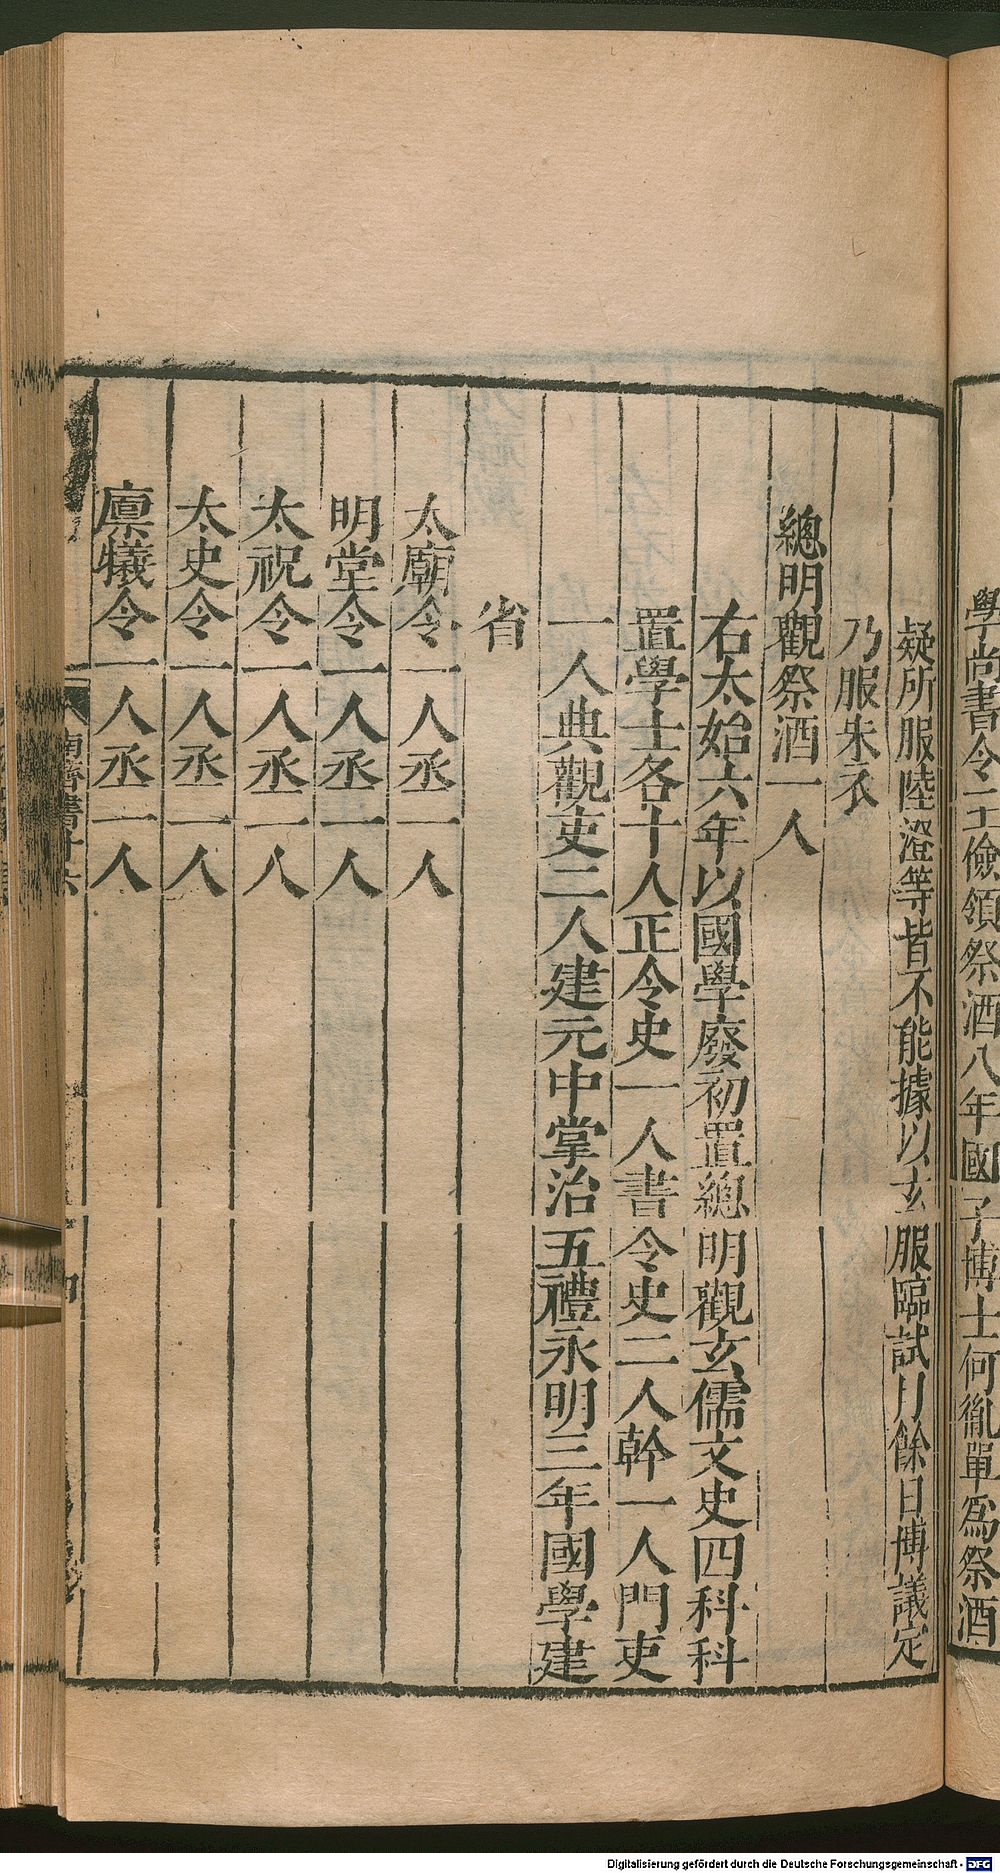 學尚書令王儉領祭酒八年國子博士何胤單爲祭酒
疑所服陸澄等皆不能據以玄服臨試月餘日博議定
乃服朱衣
總明觀祭酒一人
右太始六年以國學廢初置總明觀玄儒文史四科科
置學士各十人正令史一人書令史二人幹一人門吏
一人典觀吏二人建元中掌治五禮永明三年國學建
省
太廟令一人丞一人
明堂令一人丞一人
太祝令一人丞一人
太史令一人丞一人
廩犧令一人丞一人
南齊書十六
Digitalisierung gefördert durch die Deutsche Forschungsgemeinschaft - DFG